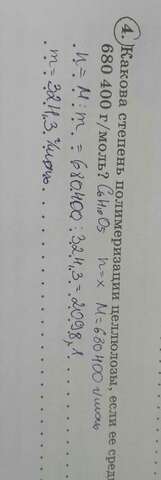 4. Какова степень полимеризации целлюлозы, если ее сред
680 400 г/моль? C6H10O5 n=x M=680400 г/моль
n = M : m = 680400 : 324,3 = 2098,1
m = 324,3 г/моль.